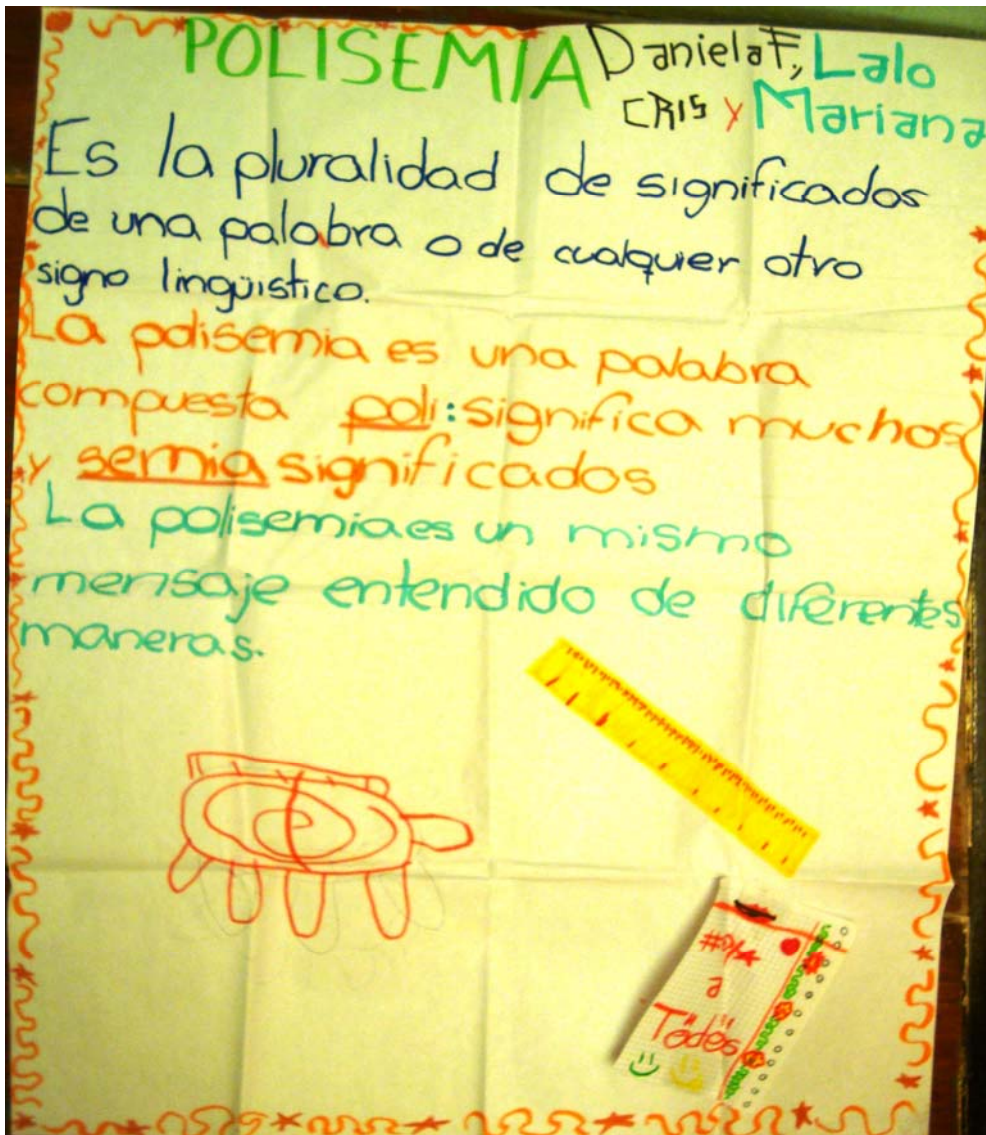 POLISEMIA Daniela F, Lalo
CRIS y Mariana
Es la pluralidad de significados
de una palabra o de cualquier otro
signo lingüistico.
La polisemia es una palabra
compuesta poli: significa muchos
y semia significados
La polisemia es un mismo
mensaje entendido de diferentes
maneras.
a
Todos